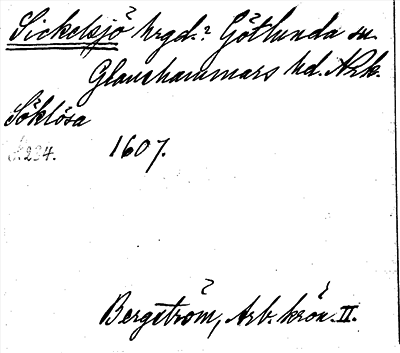 Sickelsjö hrgd.? Götlunda sn
Glanshammars hd. Nrk.
Söklösa
s. 234. 1607.
Bergström, Arb. krön. II.